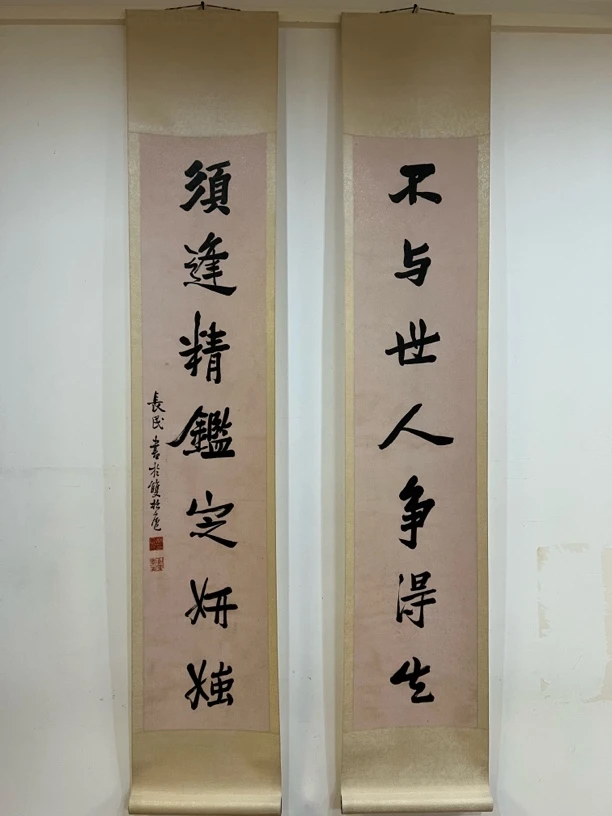 不与世人争得失
須逢精鑑定妍媸
長民書於雙栝廬